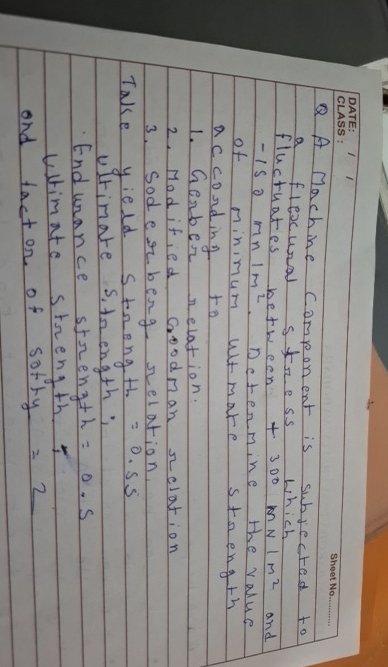 DATE: / /
CLASS:
Sheet No..........
Q A Machine component is subjected to
a flexural stress which
fluctuates between + 300 MN/m² and
-150 mn/m². Determine the value
of minimum ultmate strength
according to
1. Gerber relation.
2. Modified Goodman relation
3. Soderberg relation.
Take yield strength = 0.55
ultimate strength,
Endurance strength = 0.5
ultimate strength,
and factor of softy = 2